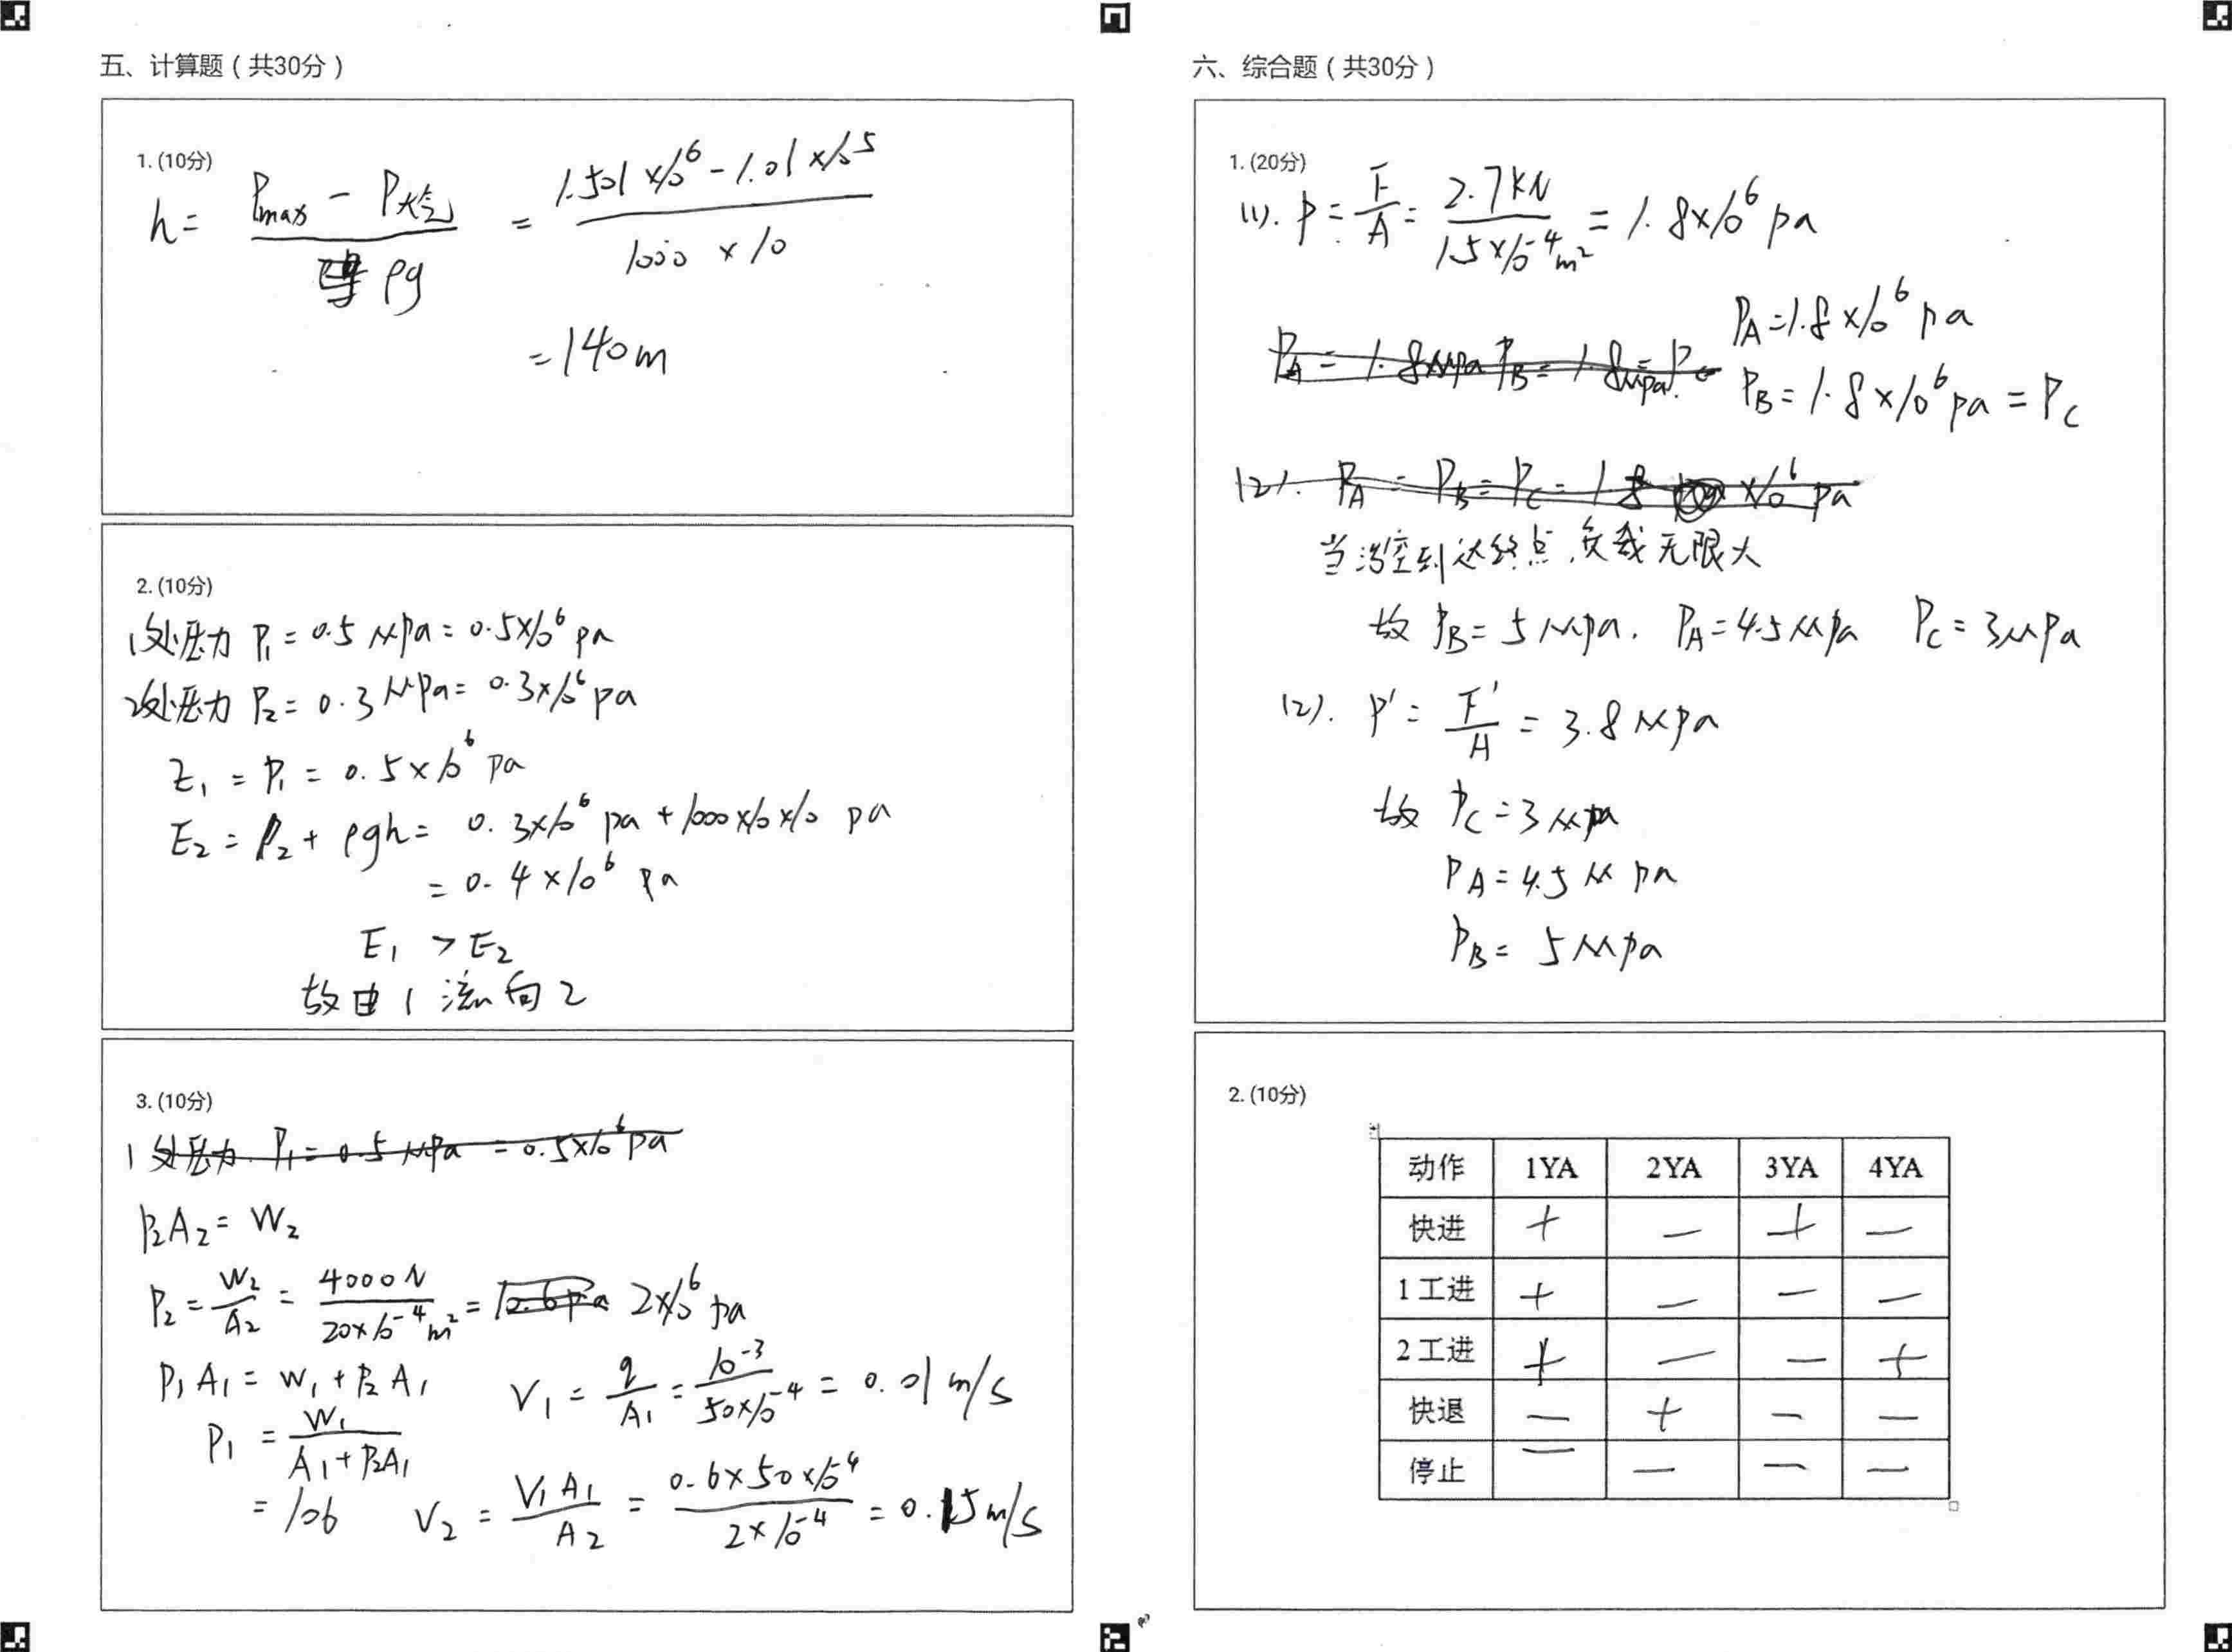 五、计算题（共30分）
1.(10分)
h= (Pmax − P大气)/(ρg) = (1.501×10^6 − 1.01×10^5)/(1000×10)
=140m
2.(10分)
1处压力 P₁=0.5Mpa=0.5×10^6 pa
2处压力 P₂=0.3MPa=0.3×10^6 pa
Z₁=P₁=0.5×10^6 pa
E₂=P₂+ρgh=0.3×10^6 pa+1000×10×10 pa
=0.4×10^6 pa
E₁>E₂
故由1流向2
3.(10分)
1处压力 P₁=0.5MPa=0.5×10^6 pa
P₂A₂=W₂
P₂=W₂/A₂=4000N/(20×10^-4 m²)= 2×10^6 pa
P₁A₁=W₁+P₂A₁
V₁=q/A₁=10^-3/(50×10^-4)=0.01m/s
P₁=W₁/(A₁+P₂A₁)
=106
V₂=V₁A₁/A₂=(0.6×50×10^-4)/(2×10^-4)=0.15m/s
六、综合题（共30分）
1.(20分)
(1). P=F/A=2.7KN/(15×10^-4 m²)=1.8×10^6 pa
PA=1.8×10^6 pa
PA=1.8Mpa PB=1.8Mpa=Pc
PB=1.8×10^6 pa=PC
(2). PA=PB=PC=1.8 ×10^6 pa
当活塞到达终点,负载无限大
故 PB=5Mpa. PA=4.5Mpa PC=3MPa
(2). P'=F'/A=3.8Mpa
故 PC=3Mpa
PA=4.5Mpa
PB=5Mpa
2.(10分)
动作 1YA 2YA 3YA 4YA
快进 + − + −
1工进 + − − −
2工进 + − − +
快退 − + − −
停止 − − − −